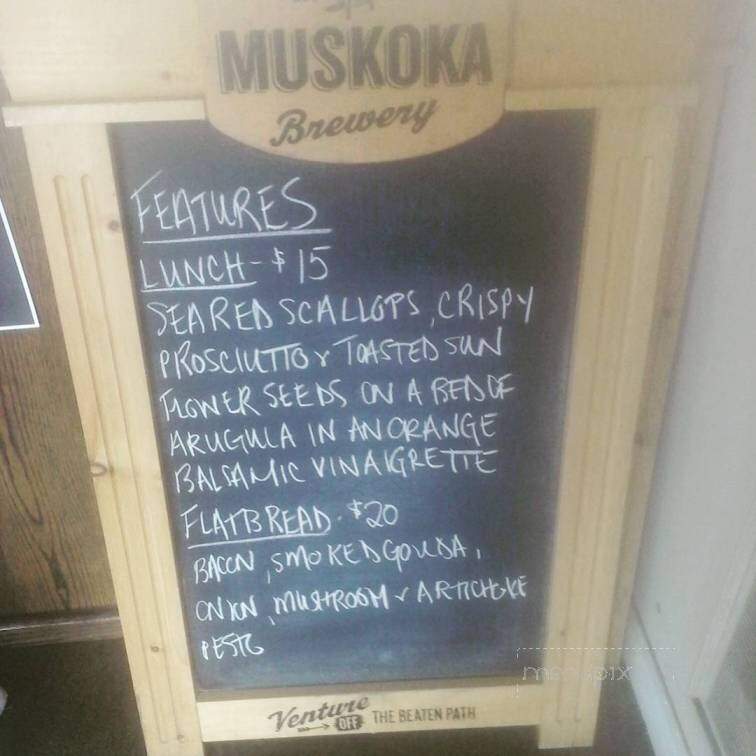 MUSKOKA
Brewery
FEATURES
LUNCH - $15
SEARED SCALLOPS, CRISPY
PROSCIUTTO & TOASTED SUN
FLOWER SEEDS ON A BED OF
ARUGULA IN AN ORANGE
BALSAMIC VINAIGRETTE
FLATBREAD - $20
BACON, SMOKED GOUDA,
ONION, MUSHROOM & ARTICHOKE
PESTO
Venture
OFF THE BEATEN PATH